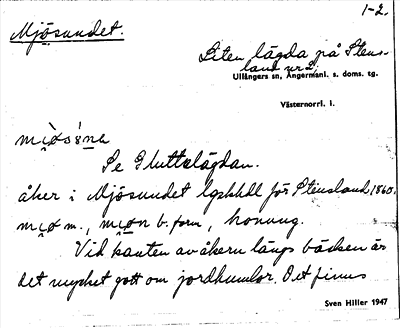 1-2.
Mjösundet.
Liten lägda på Stens-
land nr 2.
Ullångers sn, Ångermanl. s. doms. tg.
Västernorrl. l.
Se Gluttalägdan.
åker i Mjösundet lgskhdl för Stensland 1860.
m., b. form, honung.
Vid kanten av åkern längs bäcken är
det mycket gott om jordhumlor. Det finns
Sven Hiller 1947